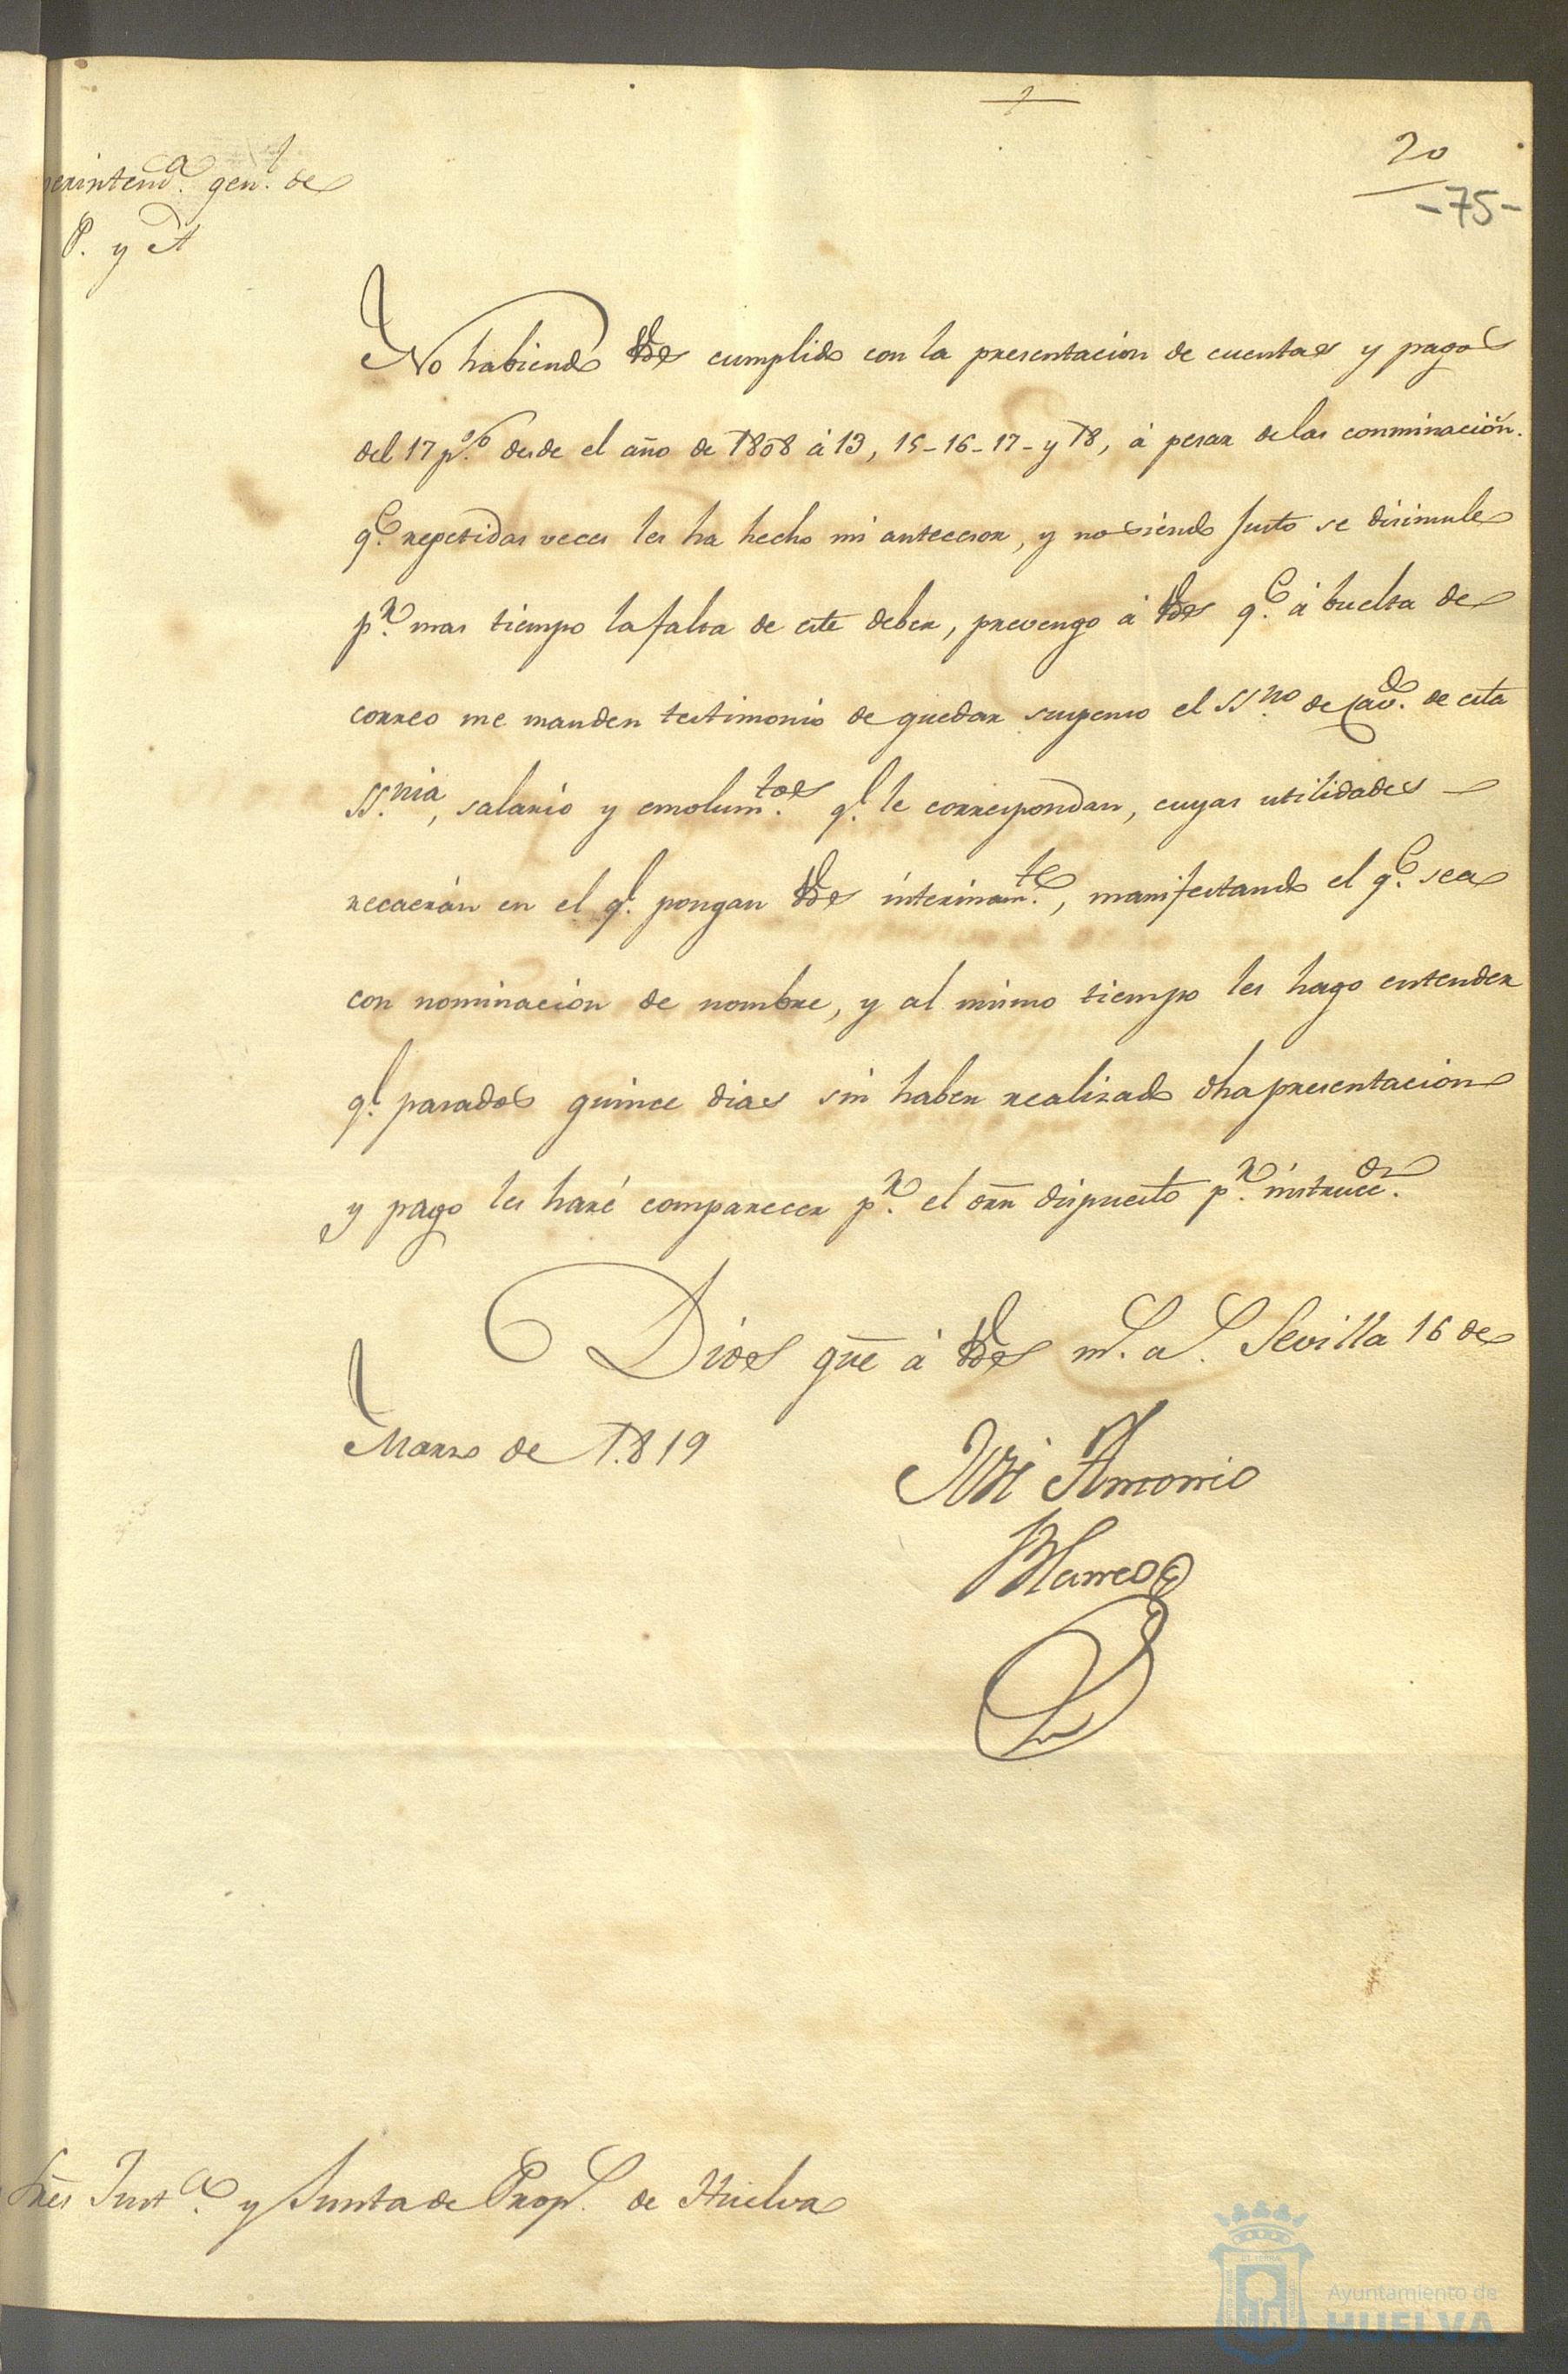 20
-75-
erintend.ª gen.l de
P. y A
No habiendo VVdes cumplido con la presentacion de cuentas y pagos
del 17 p.% desde el año de 1808 á 13, 15-16-17-y 18, á pesar de las conminacion.s
q.e repetidas veces les ha hecho mi antecesor, y no siendo justo se disimule
p.r mas tiempo la falta de este deber, prevengo á VVdes q.e á buelta de
correo me manden testimonio de quedar suspenso el SS.no de Cav.do de esta
SS.nia, salario y emolum.tos q.e le correspondan, cuyas utilidades
recaerán en el q.e pongan VVdes interinam.te, manifestando el q.e sea
con nominacion de nombre, y al mismo tiempo les hago entender
q.e pasados quince dias sin haber realizado dha presentacion
y pago les haré comparecer p.r el orn dispuesto p.r instrucc.on
Dios gue á VVdes m.s a.s Sevilla 16 de
Marzo de 1.819
José Antonio
Blanco
Sres Just.a y Junta de Prop.s de Huelva
Ayuntamiento de
HUELVA